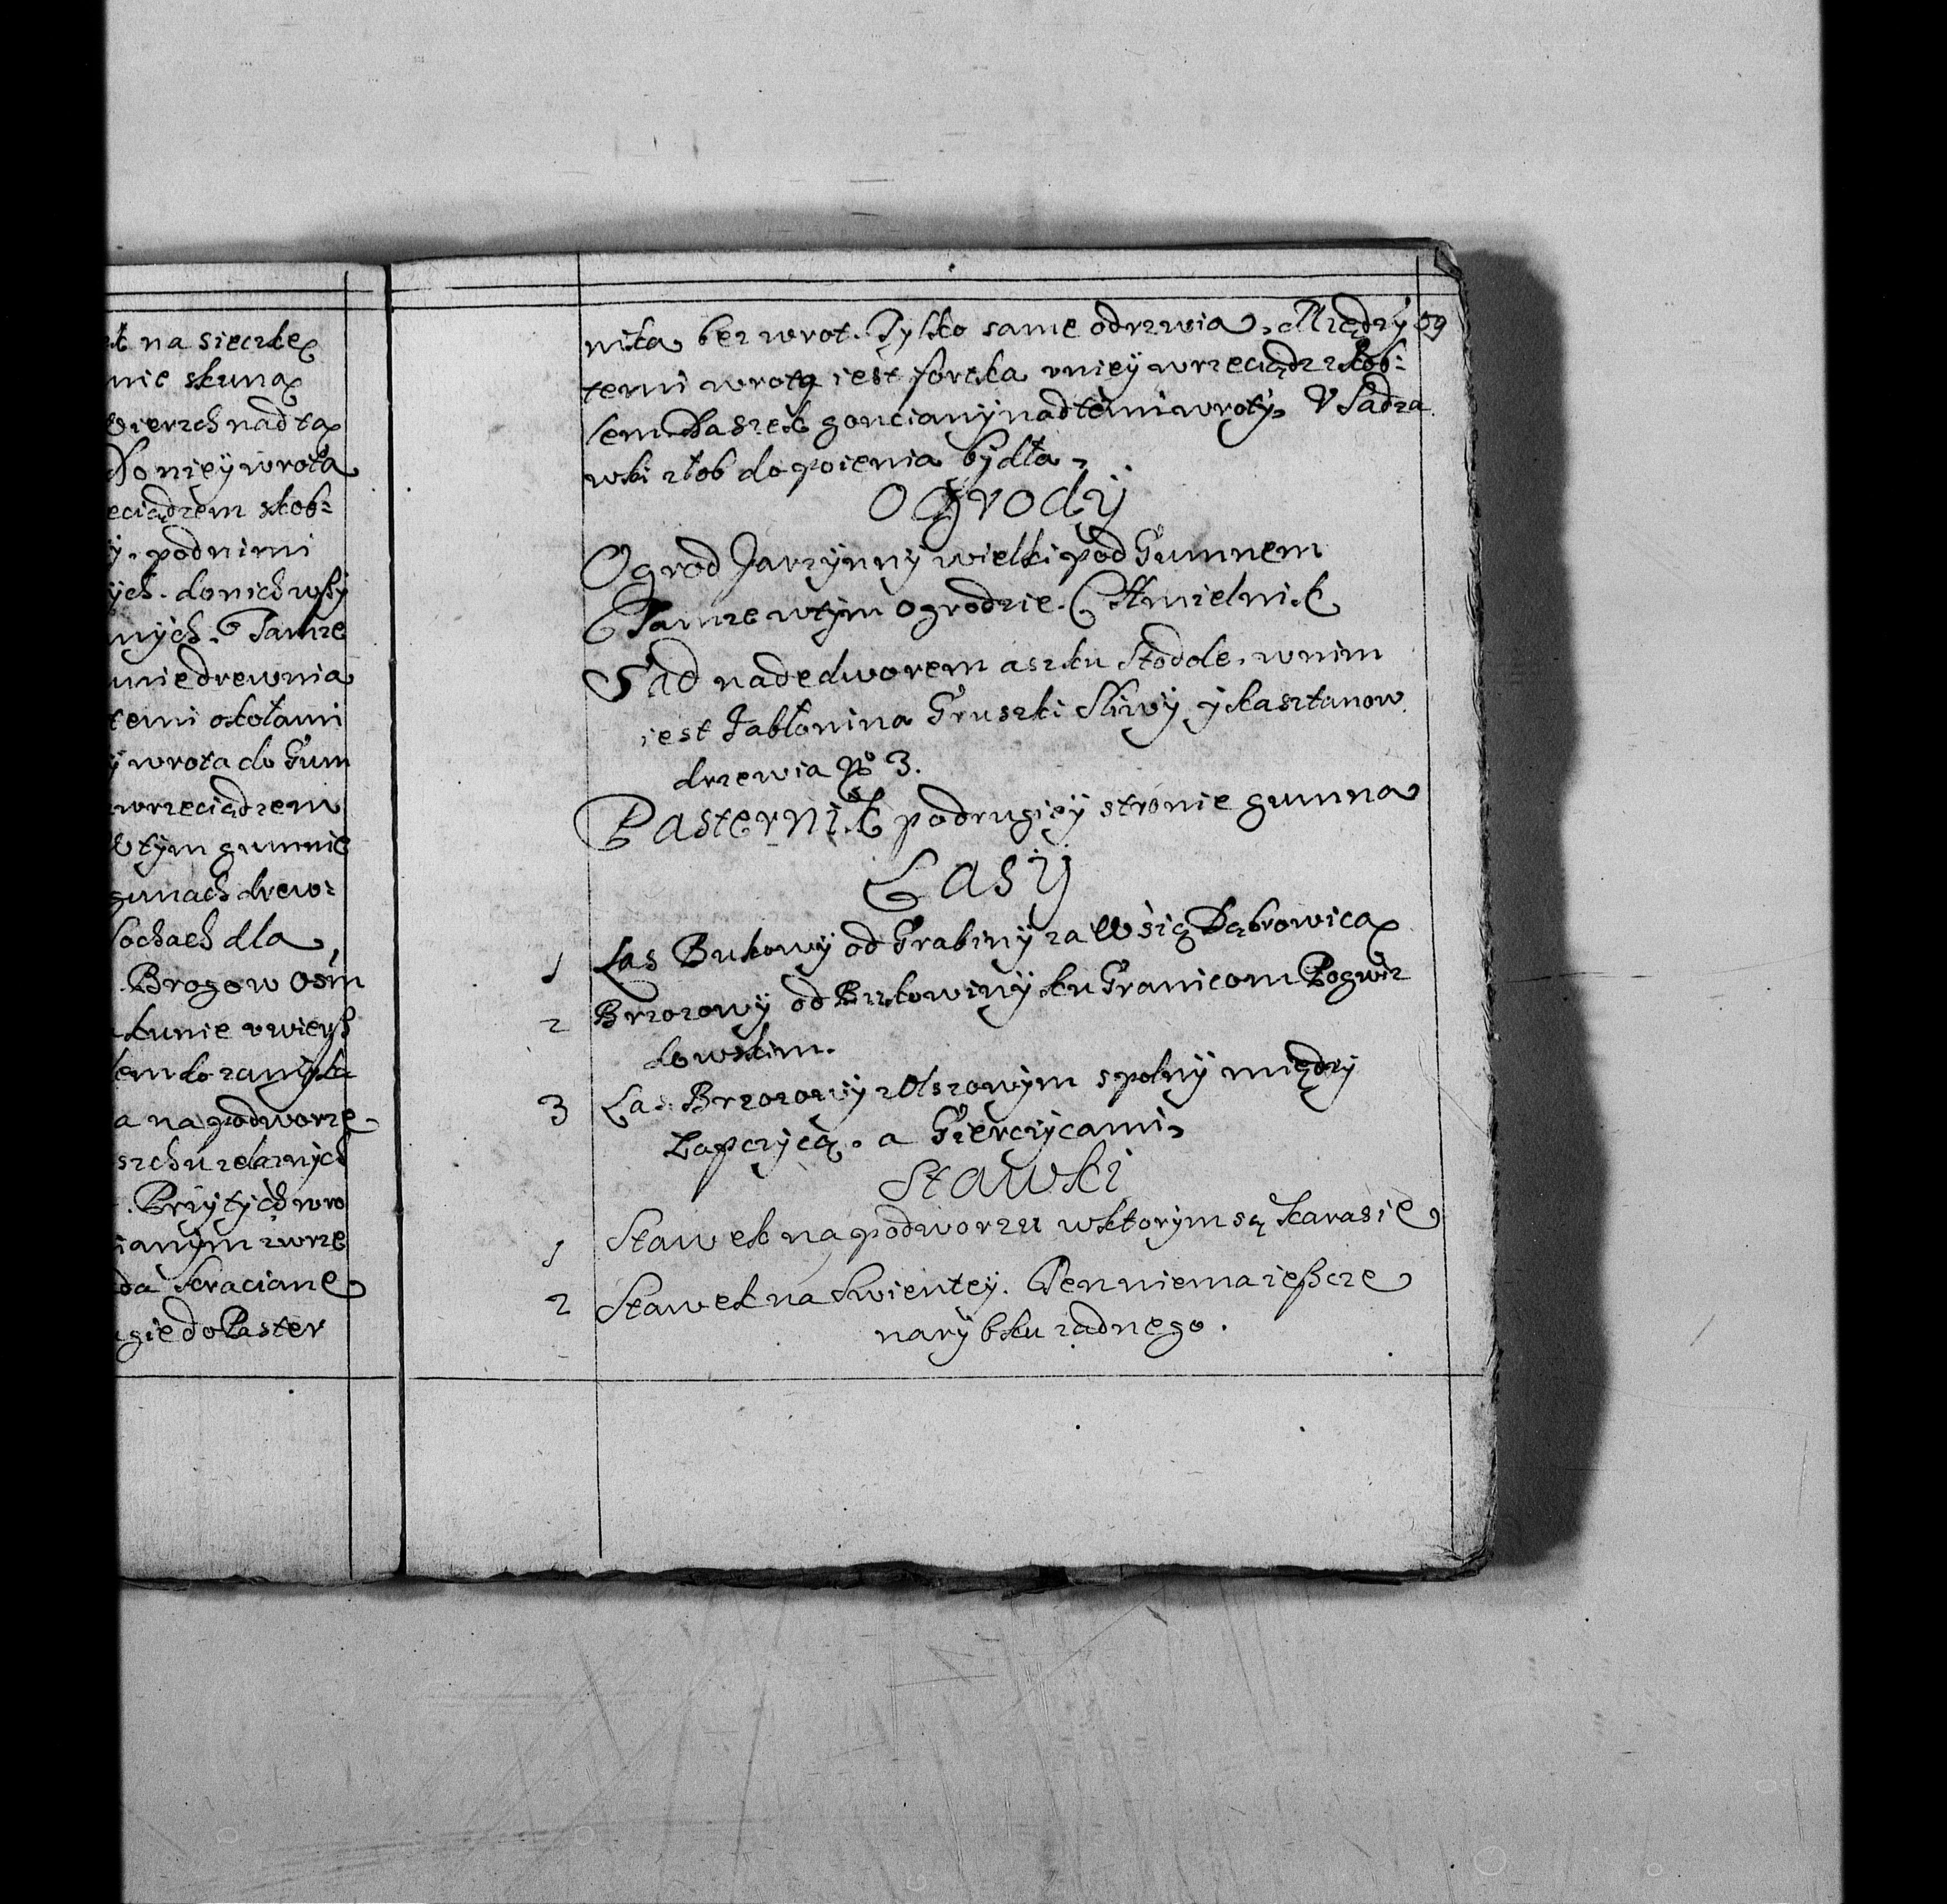 na sieczkę
nie skuna
wierzch nad ta
Do niey wrota
eciądzem skob=
y. pod nimi
ych. do nich wssy
nych. Tamze
nie drewnia
temi okołami
y wrota do Gum
wrzeciądzem
W tym gumnie
gunach drew=
sochach dla
Brogow osm
kunie v wierz
lem do zamyka
a na podworze
szchu zelaznych
Przy tych wro
ianym z wrze
da kraciane
gie do Paster
nika bez wrot. Tylko same odrzwia. Między 59
temi wroty iest fortka v niey wrzeciądz z skob=
lem. Daszek gonciany nad temi wroty. V Sadza
wki złob do poienia bydła.
Ogrody
Ogrod Jarzynny wielki pod Gumnem
Tamze w tym ogrodzie. Chmielnik
Sad nade dworem asz ku Stodole. w nim
iest Jabłonina Gruszki Sliwy y kasztanow
drzewia No 3.
Pasternik po drugiey stronie gumna
Lasy
1 Las Bukowy od Grabiny za Wsią Dąbrowica
2 Brzozowy od Bukowiny ku Granicom Pogwiz
dowskim.
3 Las Brzozowy z Olszowym spolny między
Łapczycą. a Gierczycami.
Stawki
1 Stawek na podworzu w ktorym są karasie
2 Stawek na Swientey. Ten niema ieszcze
narybku zadnego.